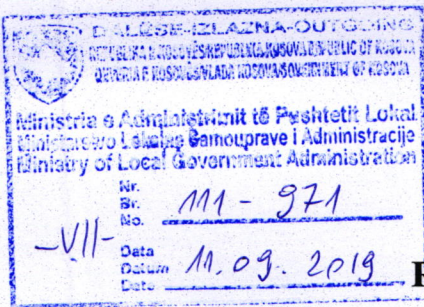 DALËSE-IZLAZNA-OUTGOING
REPUBLIKA E KOSOVËS/REPUBLIKA KOSOVA/REPUBLIC OF KOSOVA
QEVERIA E KOSOVËS/VLADA KOSOVA/GOVERNMENT OF KOSOVA
Ministria e Administrimit të Pushtetit Lokal
Ministarstvo Lokalne Samouprave i Administracije
Ministry of Local Government Administration
Nr.
Br.
No. 111-971
-VII-
Data
Datum
Date 11.09.2019